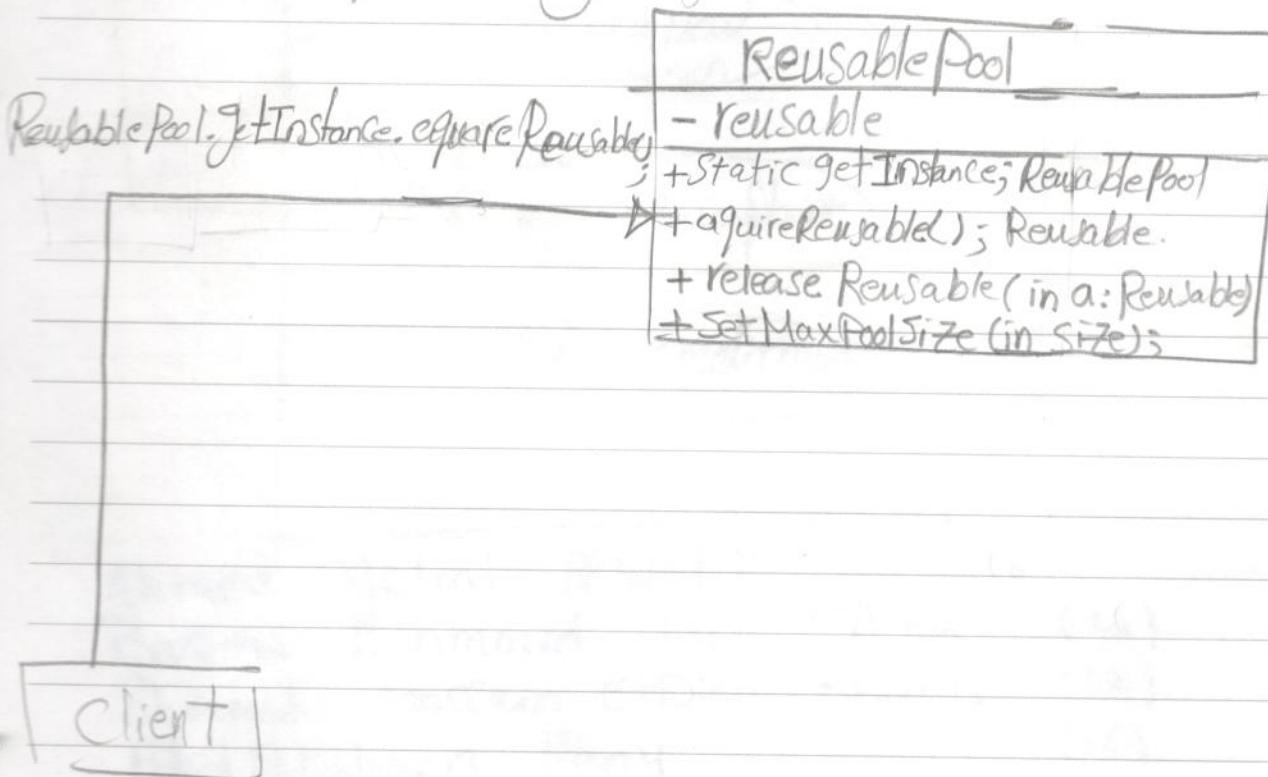 ReusablePool
- reusable
ReusablePool.getInstance.equareReausable;
; +Static getInstance; ReusablePool
+aquireReusable(); Reusable.
+ release Reusable(in a: Reusable)
+SetMaxPoolSize (in size);
Client